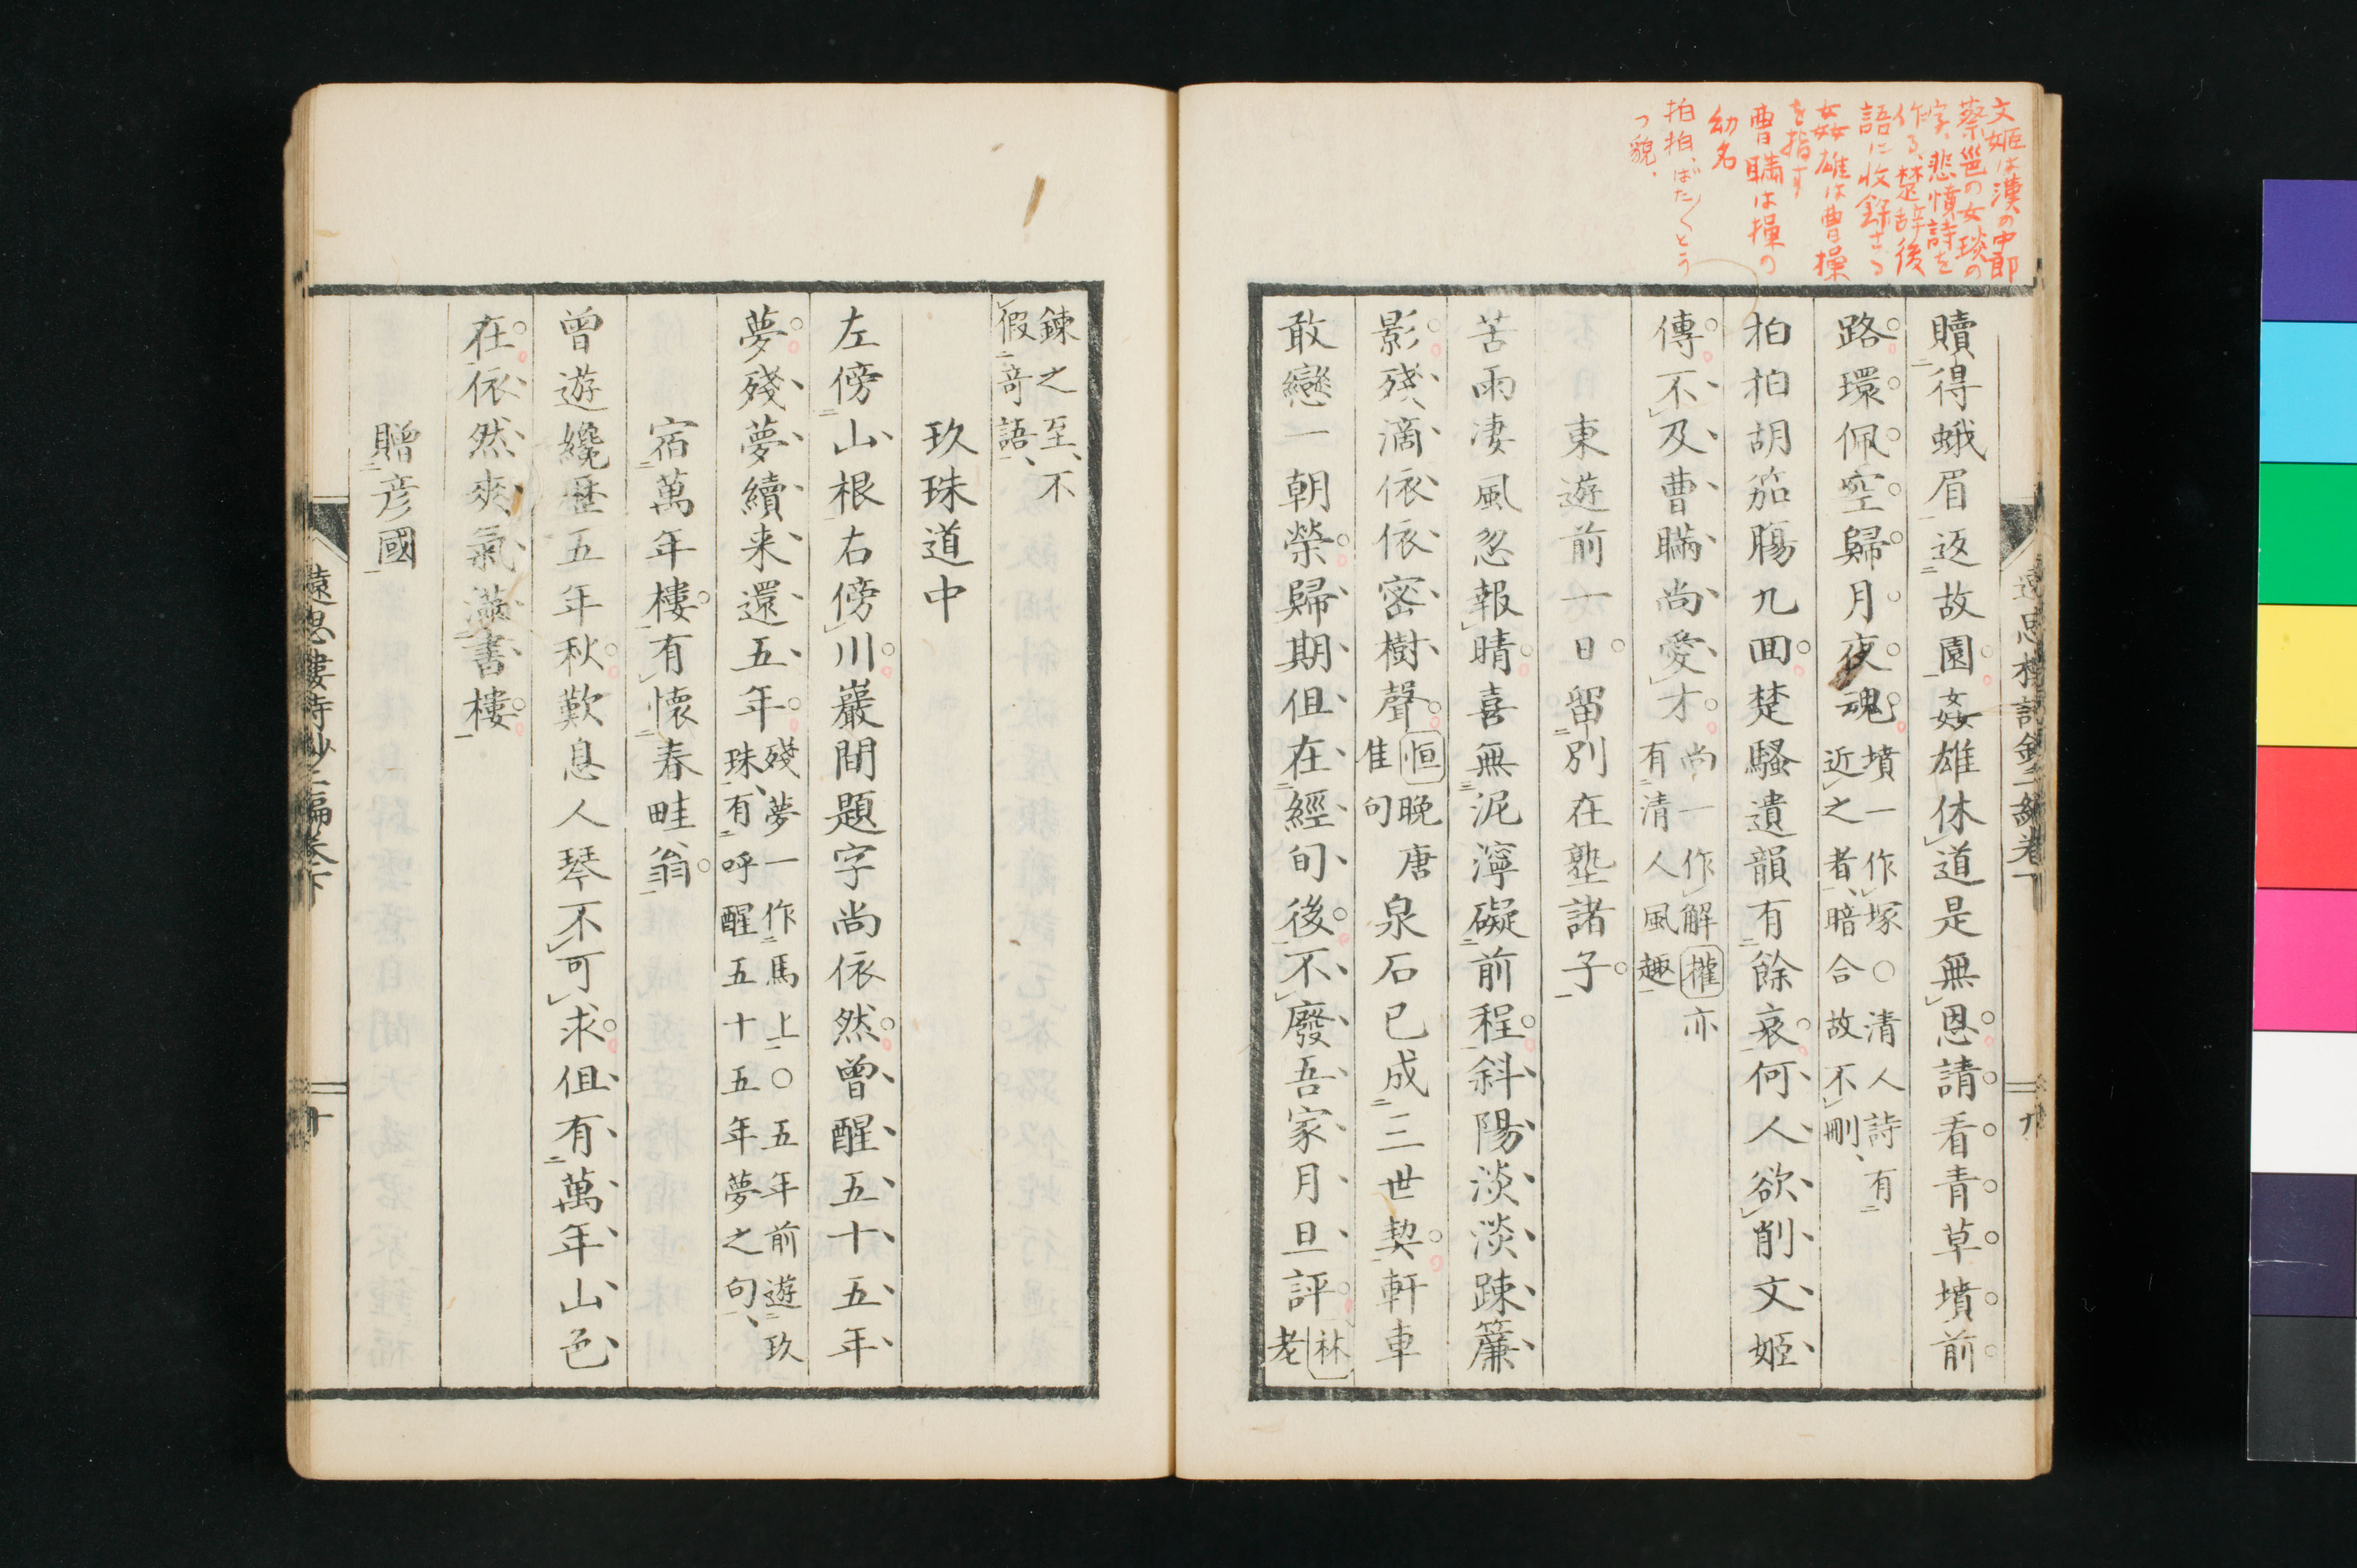 文姬は漢の中郎
蔡邕の女琰の
字、悲憤詩を
作る、楚辞後
語に收録さる
姦雄は曹操
を指す
曹瞞は操の
幼名
拍拍、ばた〳〵とう
つ貌.
贖得蛾眉返故園姦雄休道是無恩請看青草墳前
路環佩空歸月夜魂
墳一作塚○清人詩有
近之者暗合故不刪
拍拍胡笳膓九回楚騷遺韻有餘哀何人欲削文姬
傳不及曹瞞尚愛才
尚一作解權亦
有清人風趣
東遊前一日留別在塾諸子
苦雨凄風忽報晴喜無泥濘礙前程斜陽淡淡踈簾
影殘滴依依密樹聲
恒晩唐
隹句
泉石已成三世契軒車
敢戀一朝榮歸期但在經旬後不廢吾家月旦評
林
老
遠思樓詩鈔二編卷下
九
鍊之至不
假奇語
玖珠道中
左傍山根右傍川巖間題字尚依然曾醒五十五年
夢殘夢續来還五年
殘夢一作馬上○五年前遊玖
珠有呼醒五十五年夢之句
宿萬年樓有懷春畦翁
曾遊纔歷五年秋歎息人琴不可求但有萬年山色
在依然爽氣滿書樓
贈彦國
遠思樓詩鈔二編卷下
十